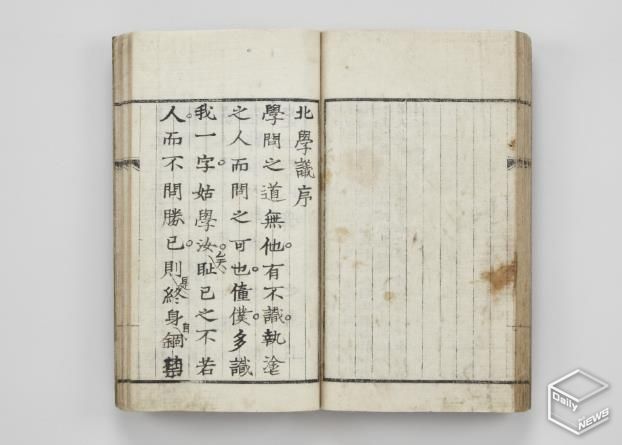 北學議序
學問之道無他。有不識。執塗
之人而問之可也。僮僕。多識
我一字。姑學汝。恥己之不若
人。而不問勝己。則是終身自錮
Daily
NEWS